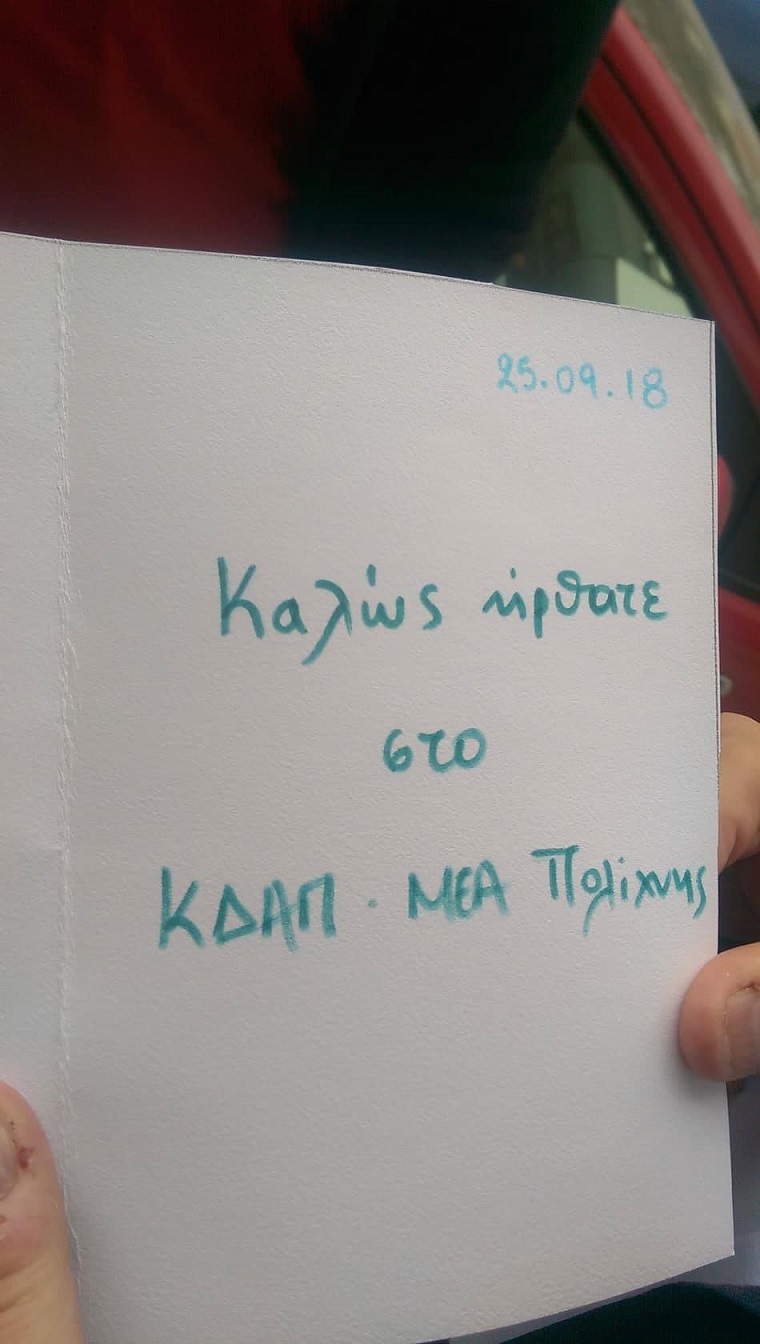 25.09.18
Καλώς ήρθατε
στο
ΚΔΑΠ · ΜΕΑ Πολίχνης